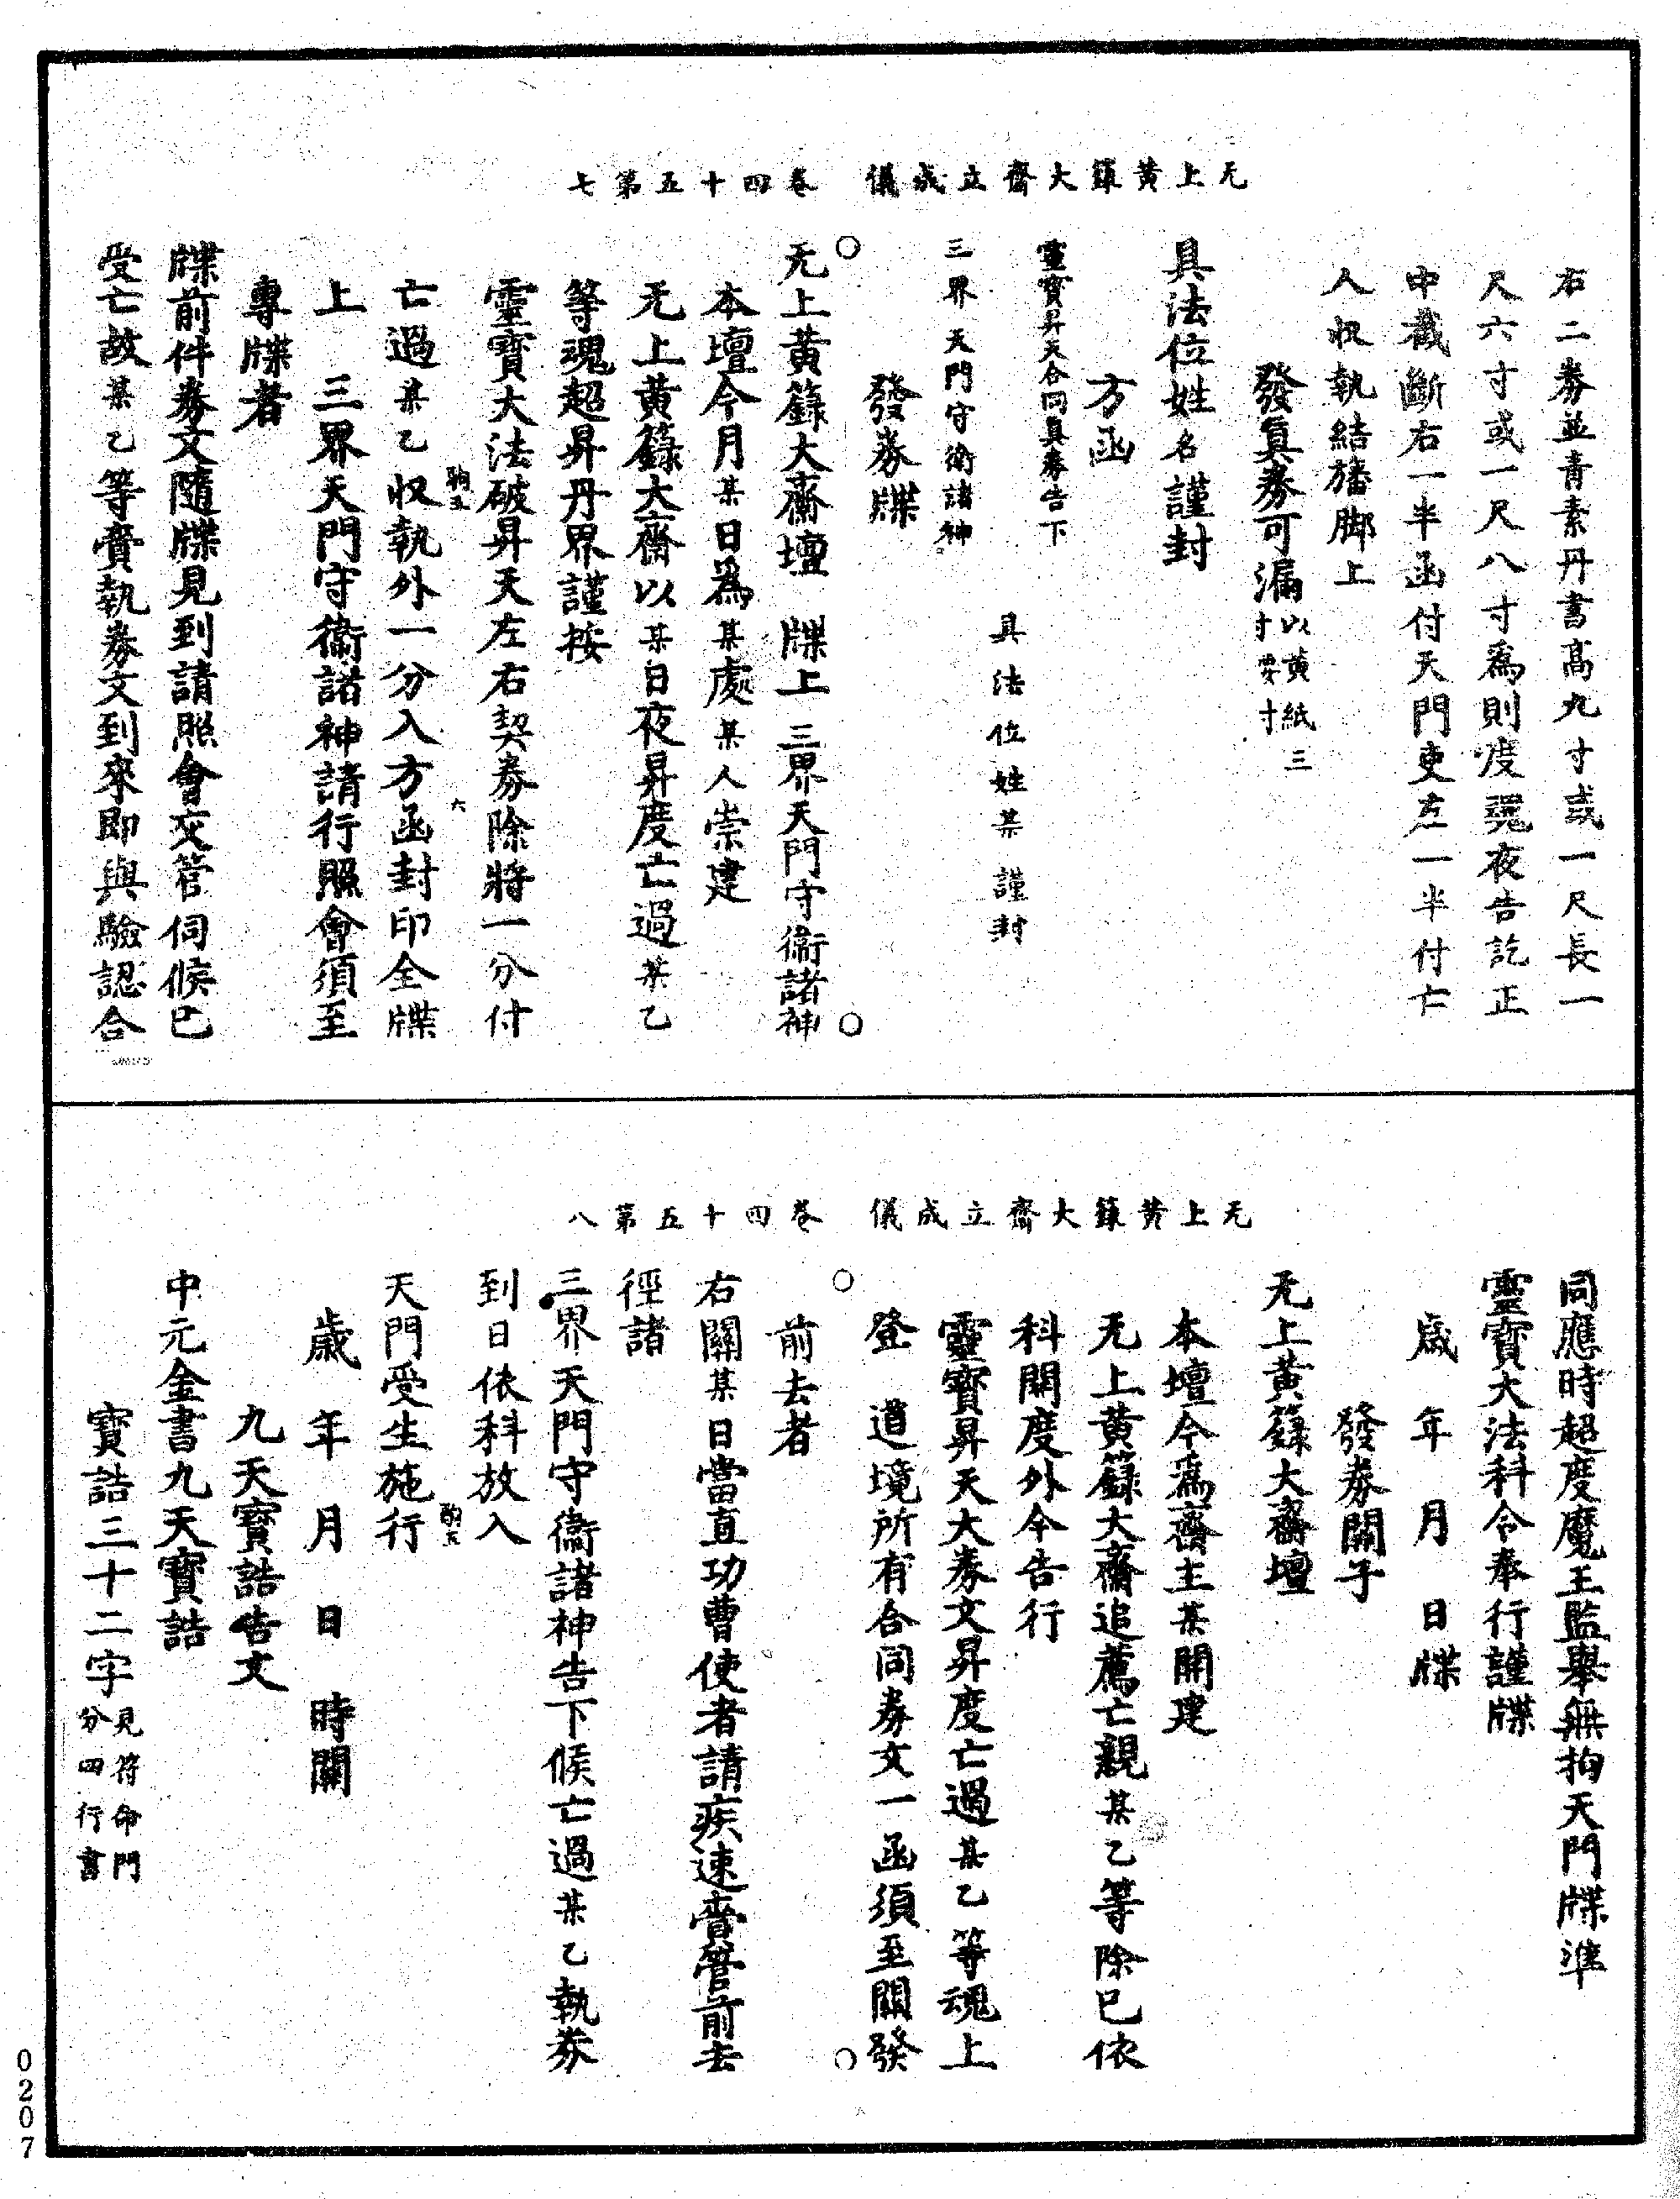 无上黃籙大齋立成儀　卷四十五第七
右二券並青素丹書高九寸或一尺長一
尺六寸或一尺八寸爲則度䰟夜告訖正
中截斷右一半函付天門吏左一半付亡
人収執結旛脚上
發眞券可漏以黃紙三寸
具法位姓名謹封
方函
靈寶昇天合同眞券告下
具法位姓某謹封
三界天門守衛諸神
發券牒
无上黃籙大齋壇　牒上三界天門守衞諸神
本壇今月某日爲某處某人崇建
无上黃籙大齋以某日夜昇度亡過某乙
等魂超昇丹界謹按
靈寶大法破昇天左右契券除將一分付
亡過某乙収執外一分入方函封印全牒
上　三界天門守衞諸神請行照會須至
專牒者
牒前件券文隨牒見到請照會交管伺候已
受亡故某乙等賫執券文到來即與驗認合
无上黃籙大齋立成儀　卷四十五第八
同應時超度魔王監舉無拘天門牒準
靈寶大法科令奉行謹牒
歲　年　月　日牒
發券關子
无上黃籙大齋壇
本壇今爲齋主某開建
无上黃籙大齋追薦亡親某乙等除已依
科關度外今告行
靈寶昇天大券文昇度亡過某乙等魂上
登　道境所有合同券文一函須至關發
前去者
右關某日當直功曹使者請疾速賫管前去
徑諸
三界天門守衞諸神告下候亡過某乙執券
到日依科放入
天門受生施行
歲　年　月　日　時關
九天寶誥告文
中元金書九天寶誥
寶誥三十二字見符命門分四行書
0207